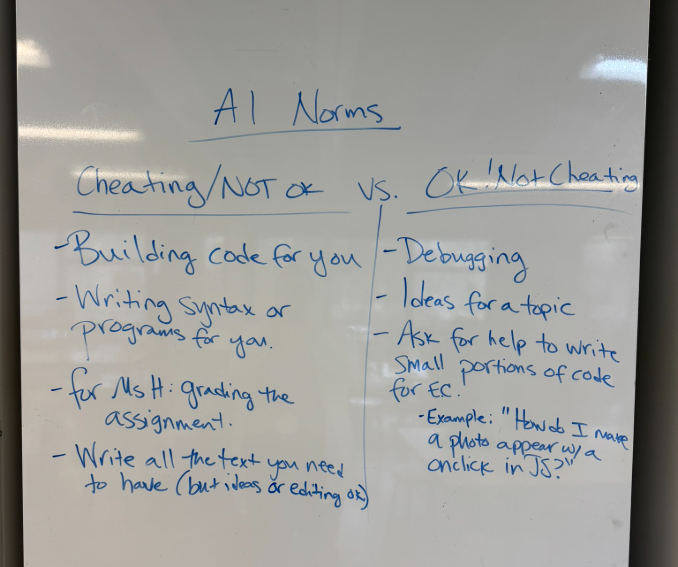 AI Norms
Cheating/NOT OK vs. OK! Not Cheating
- Building code for you
- Writing syntax or
programs for you.
- for Ms H: grading the
assignment.
- Write all the text you need
to have (but ideas or editing ok)
- Debugging
- Ideas for a topic
- Ask for help to write
small portions of code
for EC.
- Example: "How do I make
a photo appear w/a
onclick in JS?"